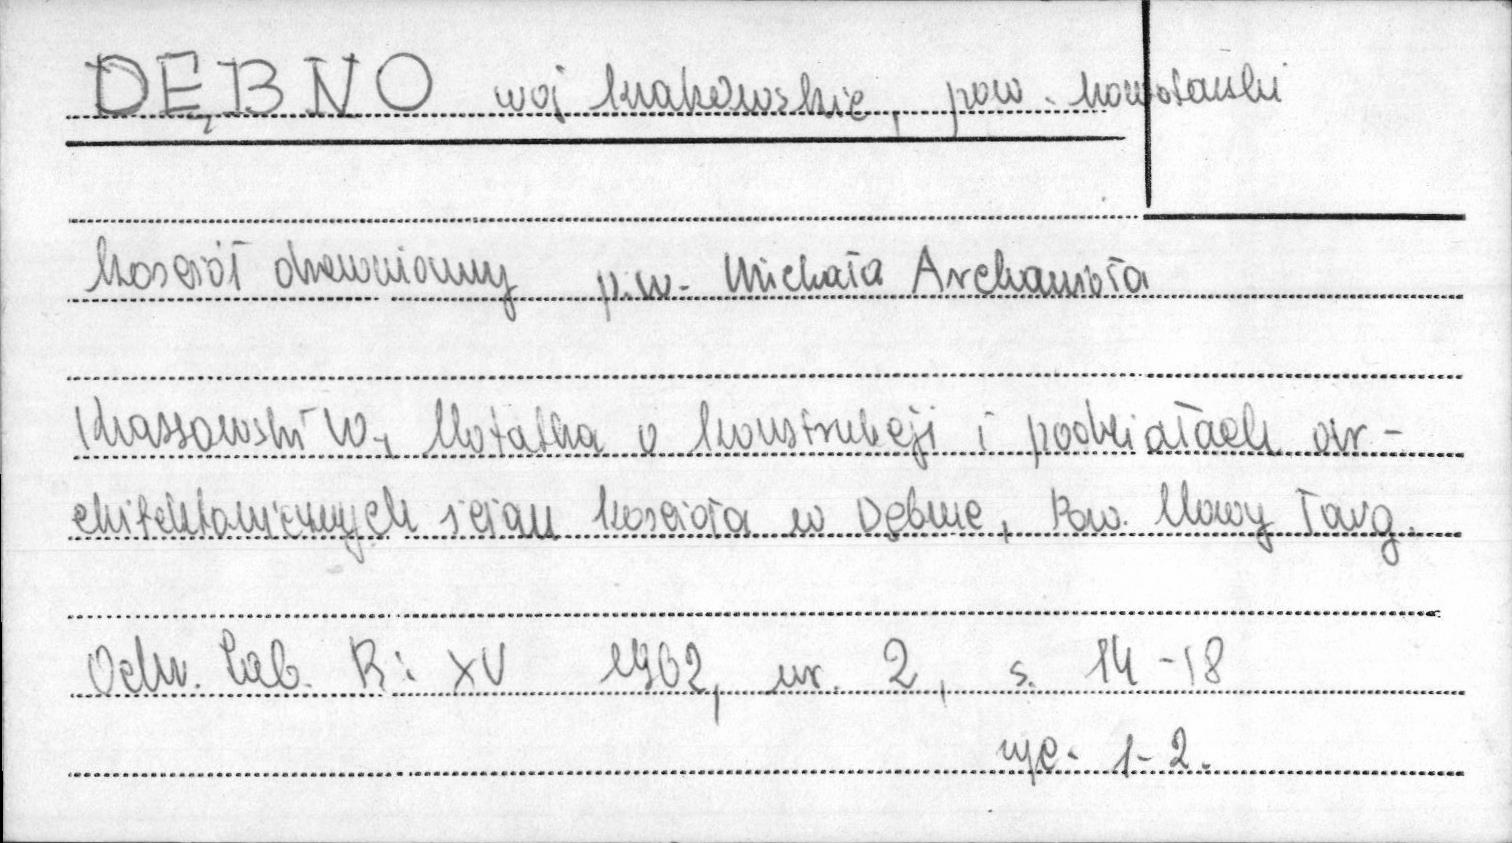 DĘBNO woj krakowskie, pow. nowotarski
kościół drewniany p.w. Michała Archanioła
Krassowski W., Notatka o konstrukcji i podziałach ar-
chitektonicznych ścian kościoła w Dębnie, Pow. Nowy Targ.
Ochr. Zab. R: XV 1962, nr. 2, s. 14-18
ryc. 1-2.